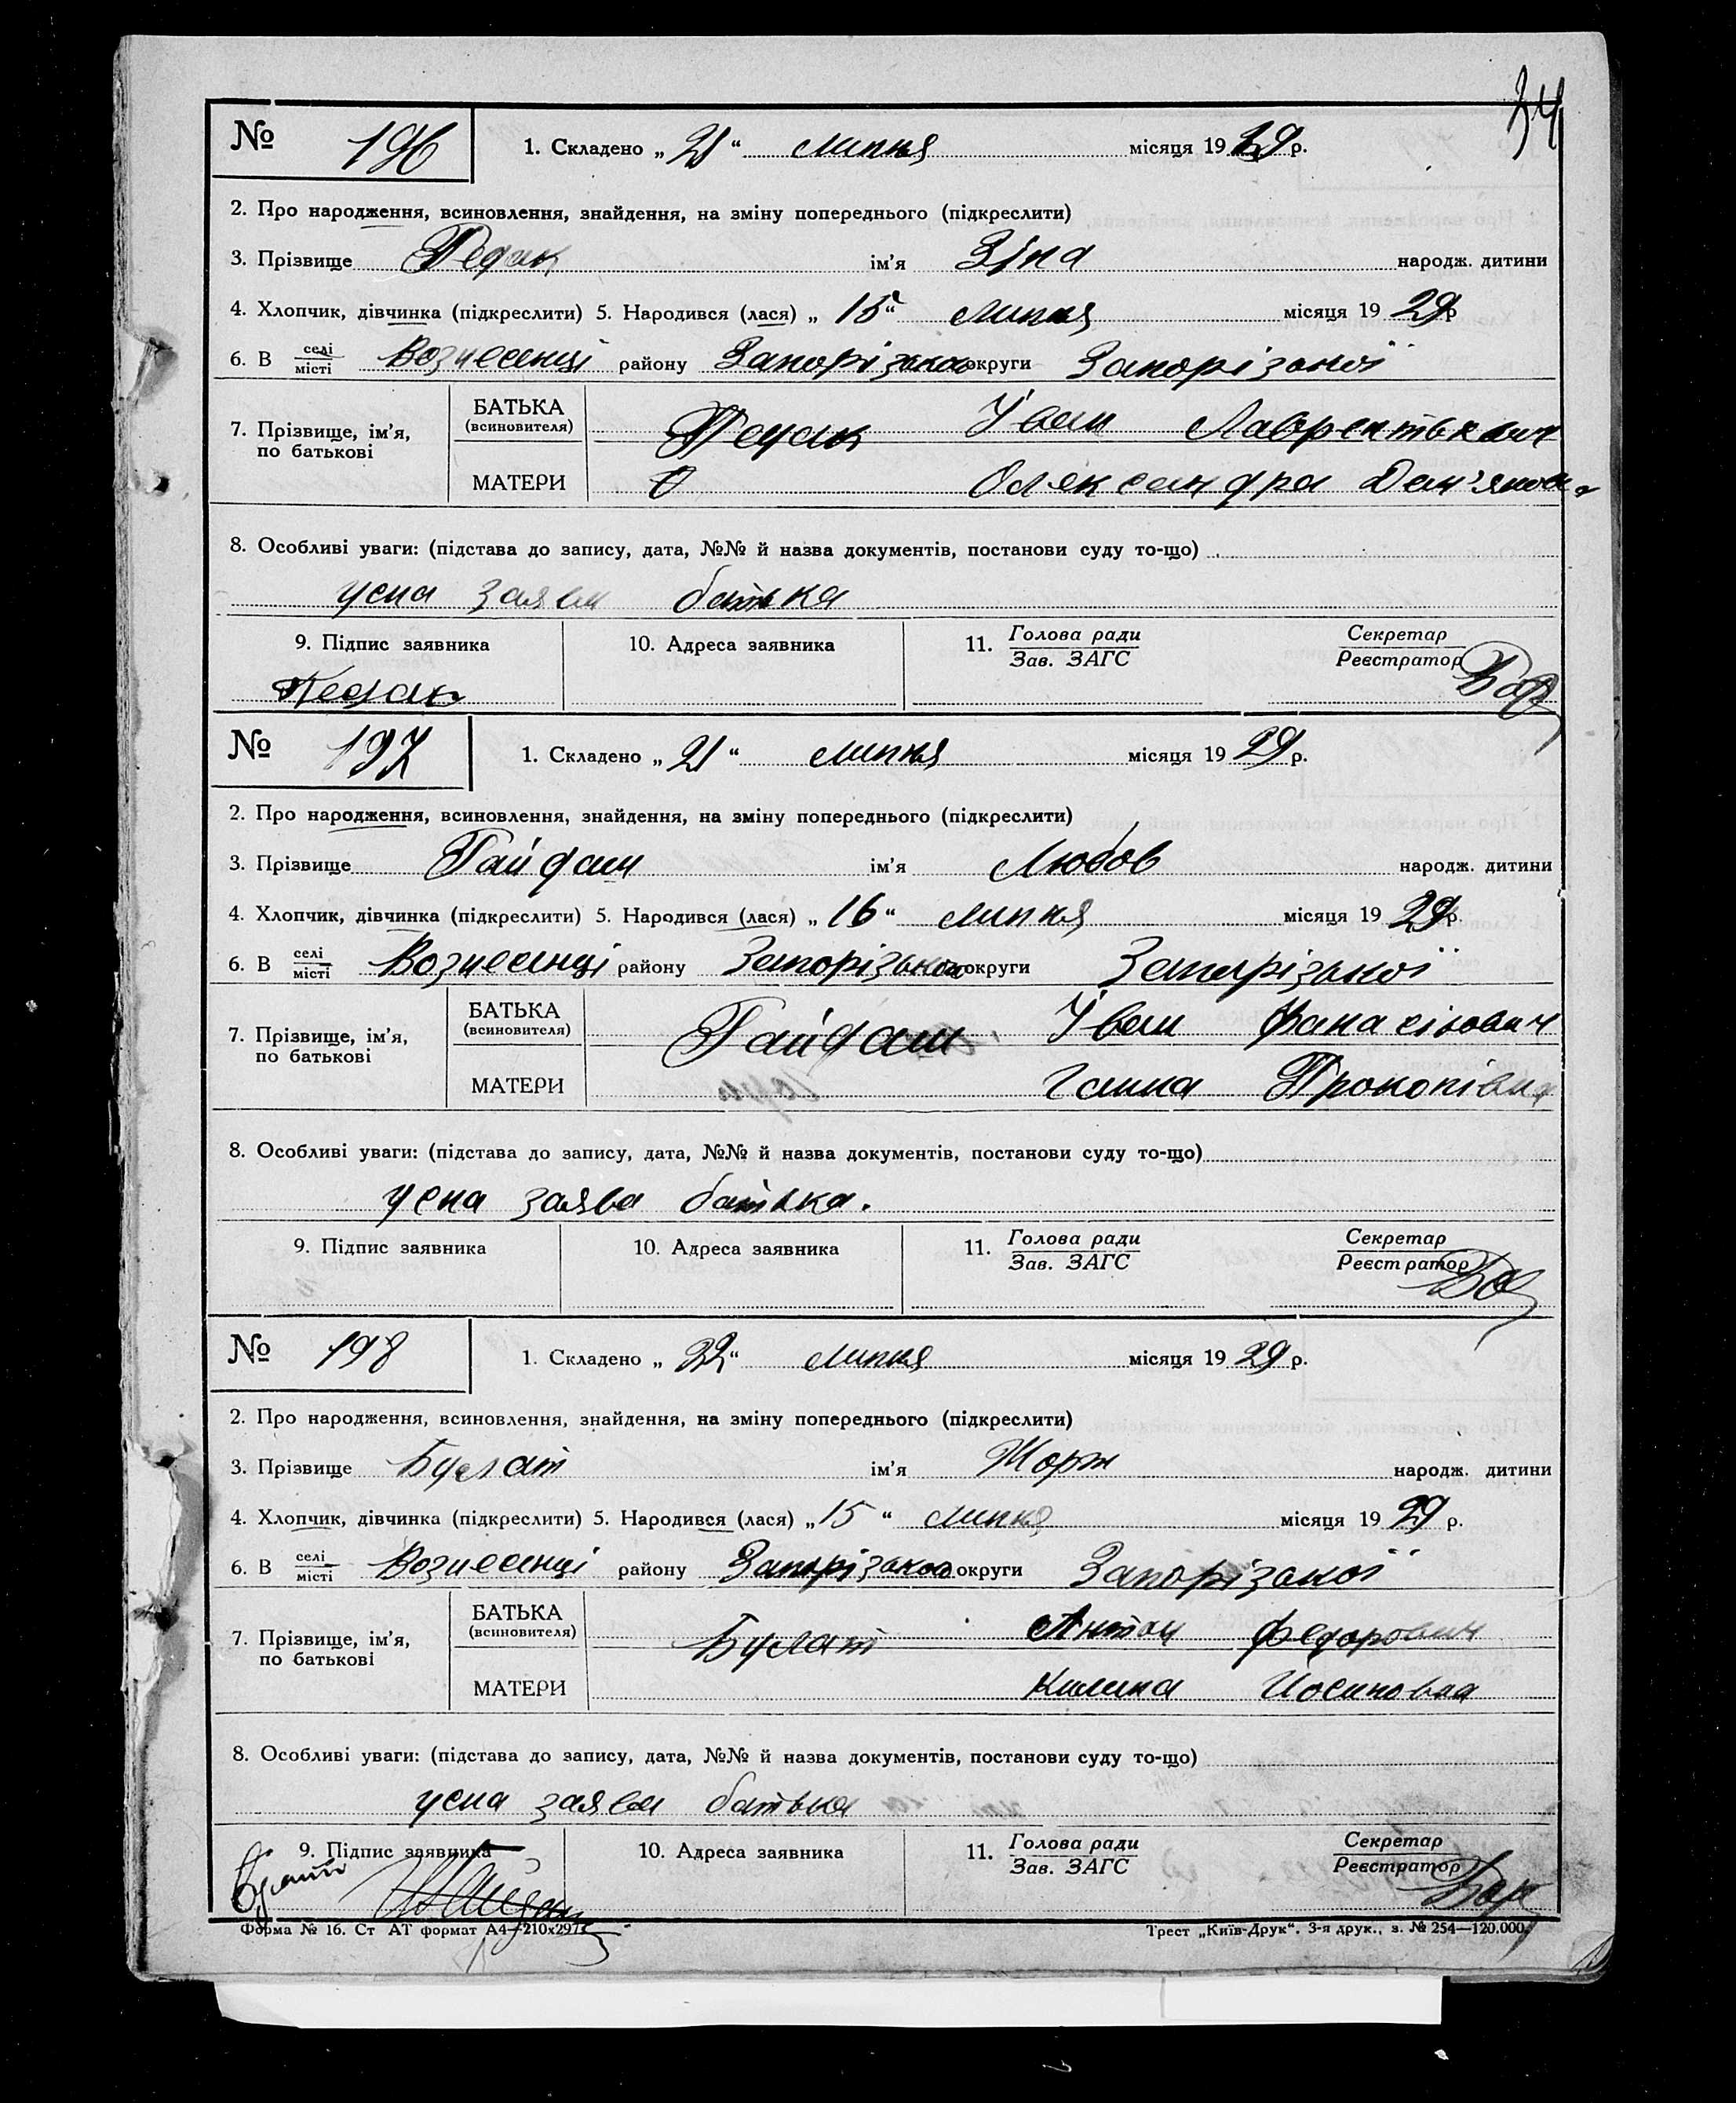 34
№ 196 1. Складено „21“ липня місяця 1929 р.
2. Про народження, всиновлення, знайдення, на зміну попереднього (підкреслити)
3. Прізвище Педак ім’я Зіна народж. дитини
4. Хлопчик, дівчинка (підкреслити) 5. Народився (лася) „15“ липня місяця 1929 р
6. В селі/місті Вознесенці району Запорізького округи Запорізької
7. Прізвище, ім’я, по батькові
БАТЬКА (всиновителя) Педак Іван Лаврентьевич
МАТЕРИ Олександра Дем’яновна
8. Особливі уваги: (підстава до запису, дата, №№ й назва документів, постанови суду то-що)
усна заява батька
9. Підпис заявника 10. Адреса заявника 11. Голова ради/Зав. ЗАГС Секретар/Реєстратор
Педак
№ 197 1. Складено „21“ липня місяця 1929 р.
2. Про народження, всиновлення, знайдення, на зміну попереднього (підкреслити)
3. Прізвище Гайдаш ім’я Любов народж. дитини
4. Хлопчик, дівчинка (підкреслити) 5. Народився (лася) „16“ липня місяця 1929 р.
6. В селі/місті Вознесенці району Запорізького округи Запорізької
7. Прізвище, ім’я, по батькові
БАТЬКА (всиновителя) Гайдаш Іван Фанасійович
МАТЕРИ Ганна Прокопівна
8. Особливі уваги: (підстава до запису, дата, №№ й назва документів, постанови суду то-що)
усна заява батька.
9. Підпис заявника 10. Адреса заявника 11. Голова ради/Зав. ЗАГС Секретар/Реєстратор
№ 198 1. Складено „22“ липня місяця 1929 р.
2. Про народження, всиновлення, знайдення, на зміну попереднього (підкреслити)
3. Прізвище Булат ім’я Жорж народж. дитини
4. Хлопчик, дівчинка (підкреслити) 5. Народився (лася) „15“ липня місяця 1929 р.
6. В селі/місті Вознесенці району Запорізького округи Запорізької
7. Прізвище, ім’я, по батькові
БАТЬКА (всиновителя) Булат Антон Федорович
МАТЕРИ Килина Иосиповна
8. Особливі уваги: (підстава до запису, дата, №№ й назва документів, постанови суду то-що)
усна заява батька
9. Підпис заявника 10. Адреса заявника 11. Голова ради/Зав. ЗАГС Секретар/Реєстратор
Булат
Форма № 16. Ст АТ формат А4—210х297 Трест „Київ-Друк“. 3-я друк., з. № 254—120.000.